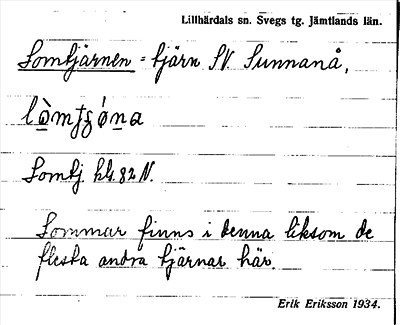 Lillhärdals sn. Svegs tg. Jämtlands län.
Lomtjärnen = tjärn SV. Sunnanå,
Lomtj. kls. 82 N.
Lommar finns i denna liksom de
flesta andra tjärnar här.
Erik Eriksson 1934.